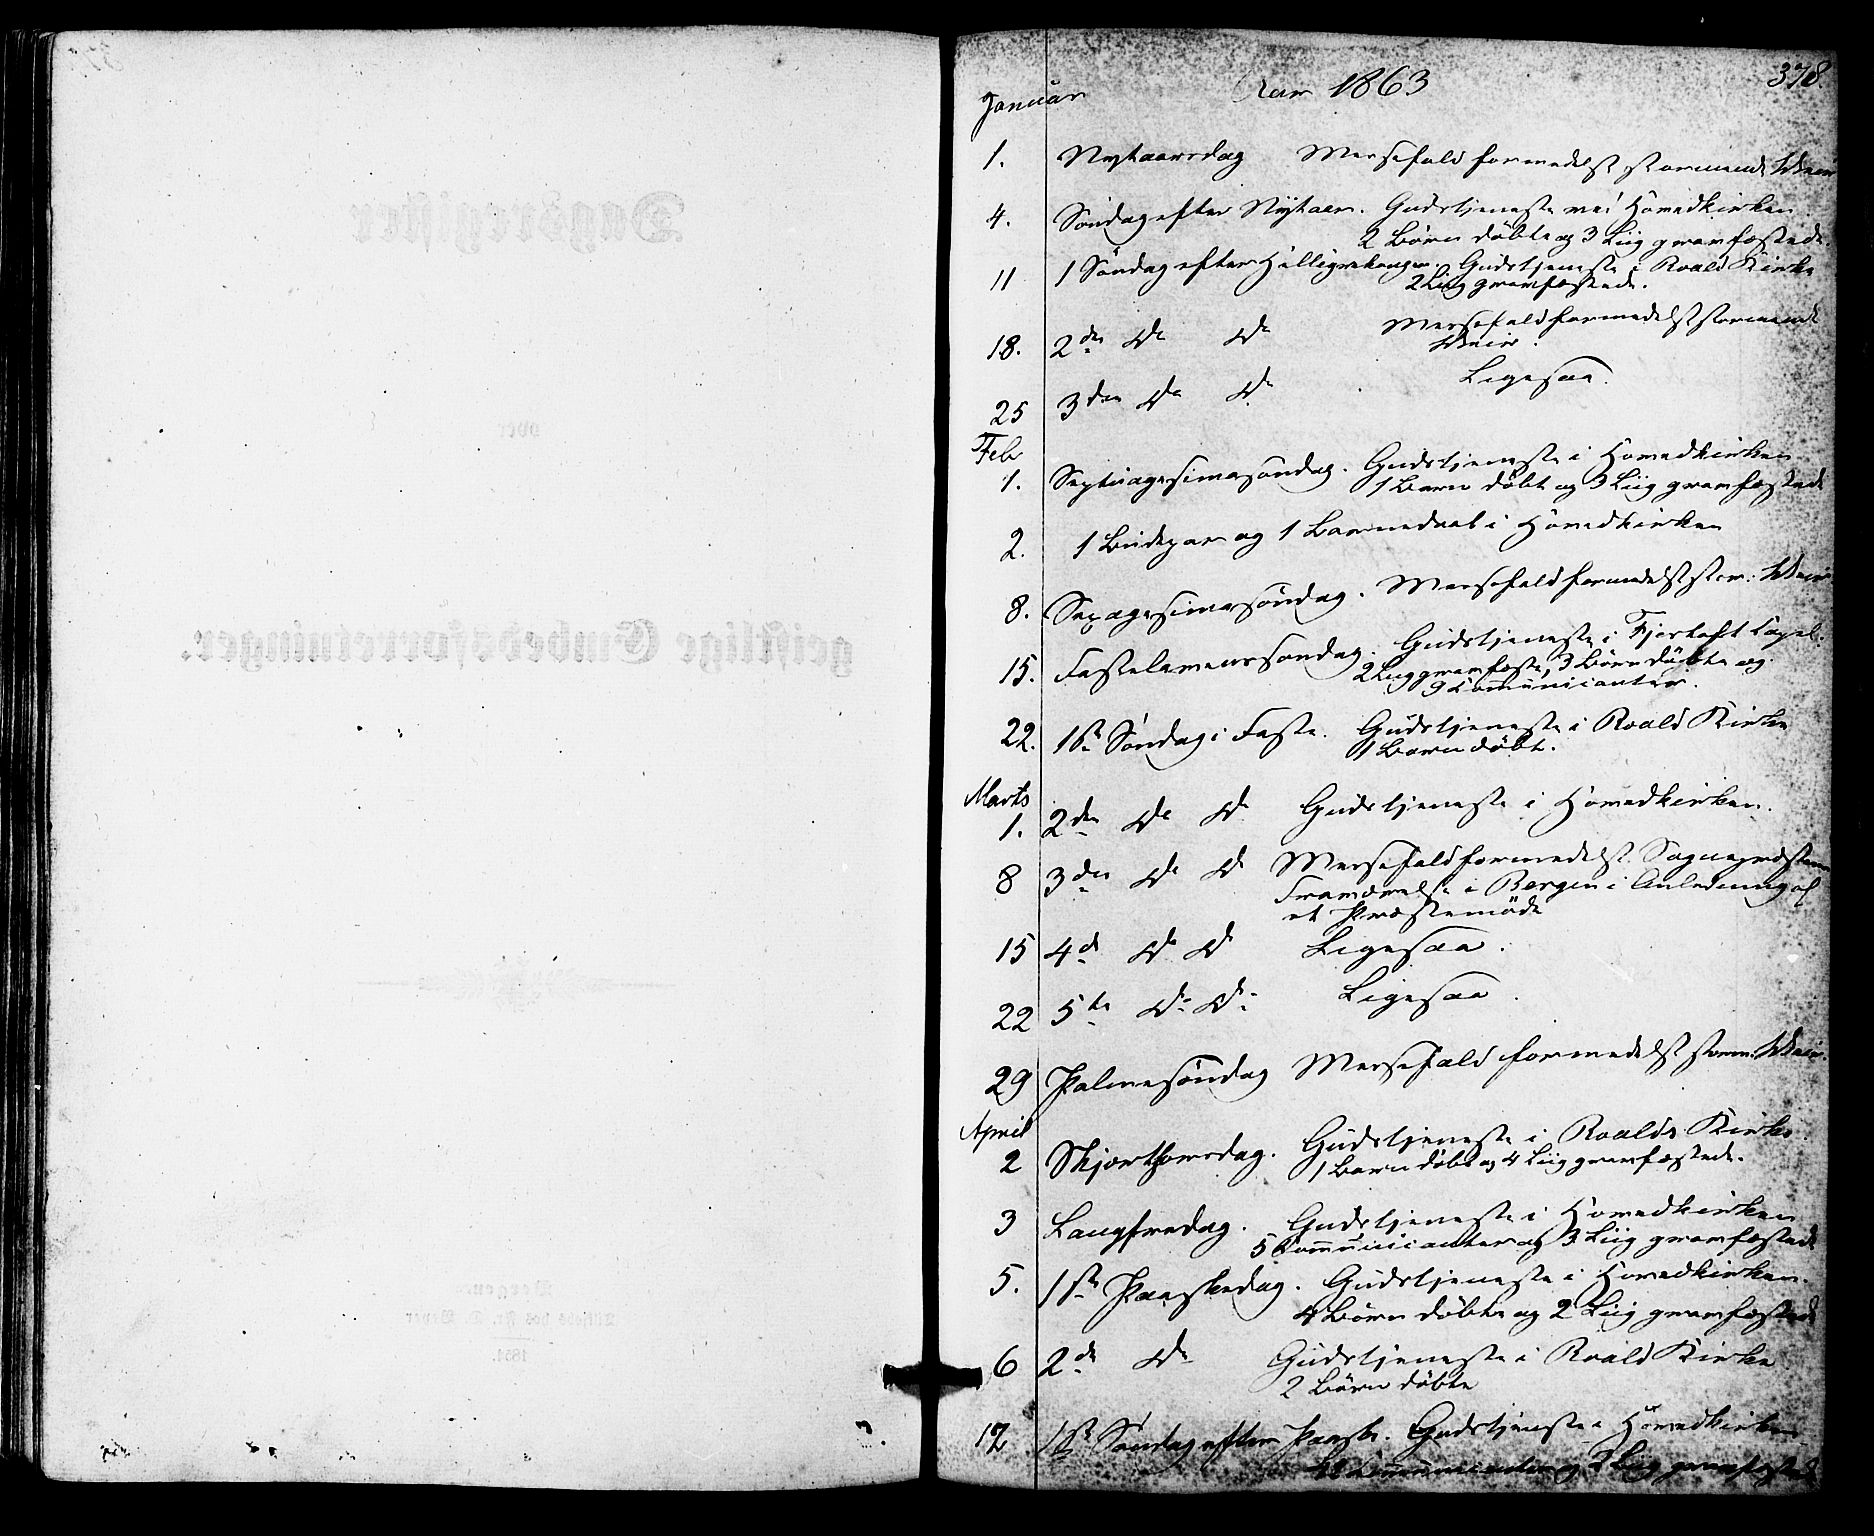 378.
Januar Aar 1863
1. Nytaarsdag Messefald formedelst stormende Veir
4. Søndag efter Nytaar. Gudstjeneste ved Hovedkirken
2 Børn døbte og 3 Liig gravfæstede.
11 1 Søndag efter Helligtrekonger. Gudstjeneste i Roald Kirke
2 Liig gravfæstede.
18. 2den Do Do Messefald formedelst stormende
Veir.
25 3den Do Do Ligesaa.
Feb
1. Septuagesimasøndag. Gudstjeneste i Hovedkirken
1 Barn døbt og 3 Liig gravfæstede
2. 1 Brudepar og 1 Barnedaab i Hovedkirken
8. Sexagesimasøndag. Messefald formedelst stor: Veir
15. Fastelavenssøndag. Gudstjeneste i Fjørtoft Capel.
2 Liig gravfæste, 3 Børn døbte og
9 Communicanter.
22. 1ste Søndag i Faste. Gudstjeneste i Roald Kirke
1 Barn døbt.
Marts
1. 2den Do Do Gudstjeneste i Hovedkirken.
8 3den Do Do Messefald formedelst Sognepræstens
Fraværelse i Bergen i Anledning af
et Præstemøde
15 4de Do Do Ligesaa.
22 5te Do Do Ligesaa.
29 Palmesøndag Messefald formedelst storm: Veir.
April
2 Skjærthorsdag. Gudstjeneste i Roalds Kirke.
1 Barn døbt og 4 Liig gravfæstede.
3 Langfredag. Gudstjeneste i Hovedkirken
5 Communicanter og 3 Liig gravfæstede
5. 1ste Paaskedag. Gudstjeneste i Hovedkirken.
4 Børn døbte og 2 Liig gravfæstede
6 2de Do Gudstjeneste i Roald Kirke
2 Børn døbte
12 1ste Søndag efter Paaske. Gudstjeneste i Hovedkirken
Communicanter og 2 Liig gravfæstede